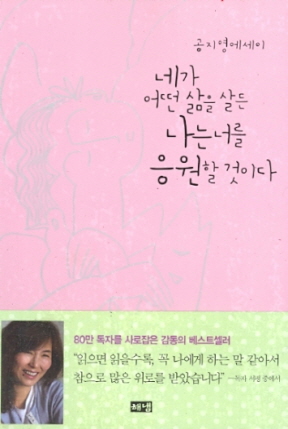 공지영에세이
네가
어떤 삶을 살든
나는 너를
응원할 것이다
80만 독자를 사로잡은 감동의 베스트셀러
"읽으면 읽을수록, 꼭 나에게 하는 말 같아서
참으로 많은 위로를 받았습니다" —독자 서평 중에서
해냄